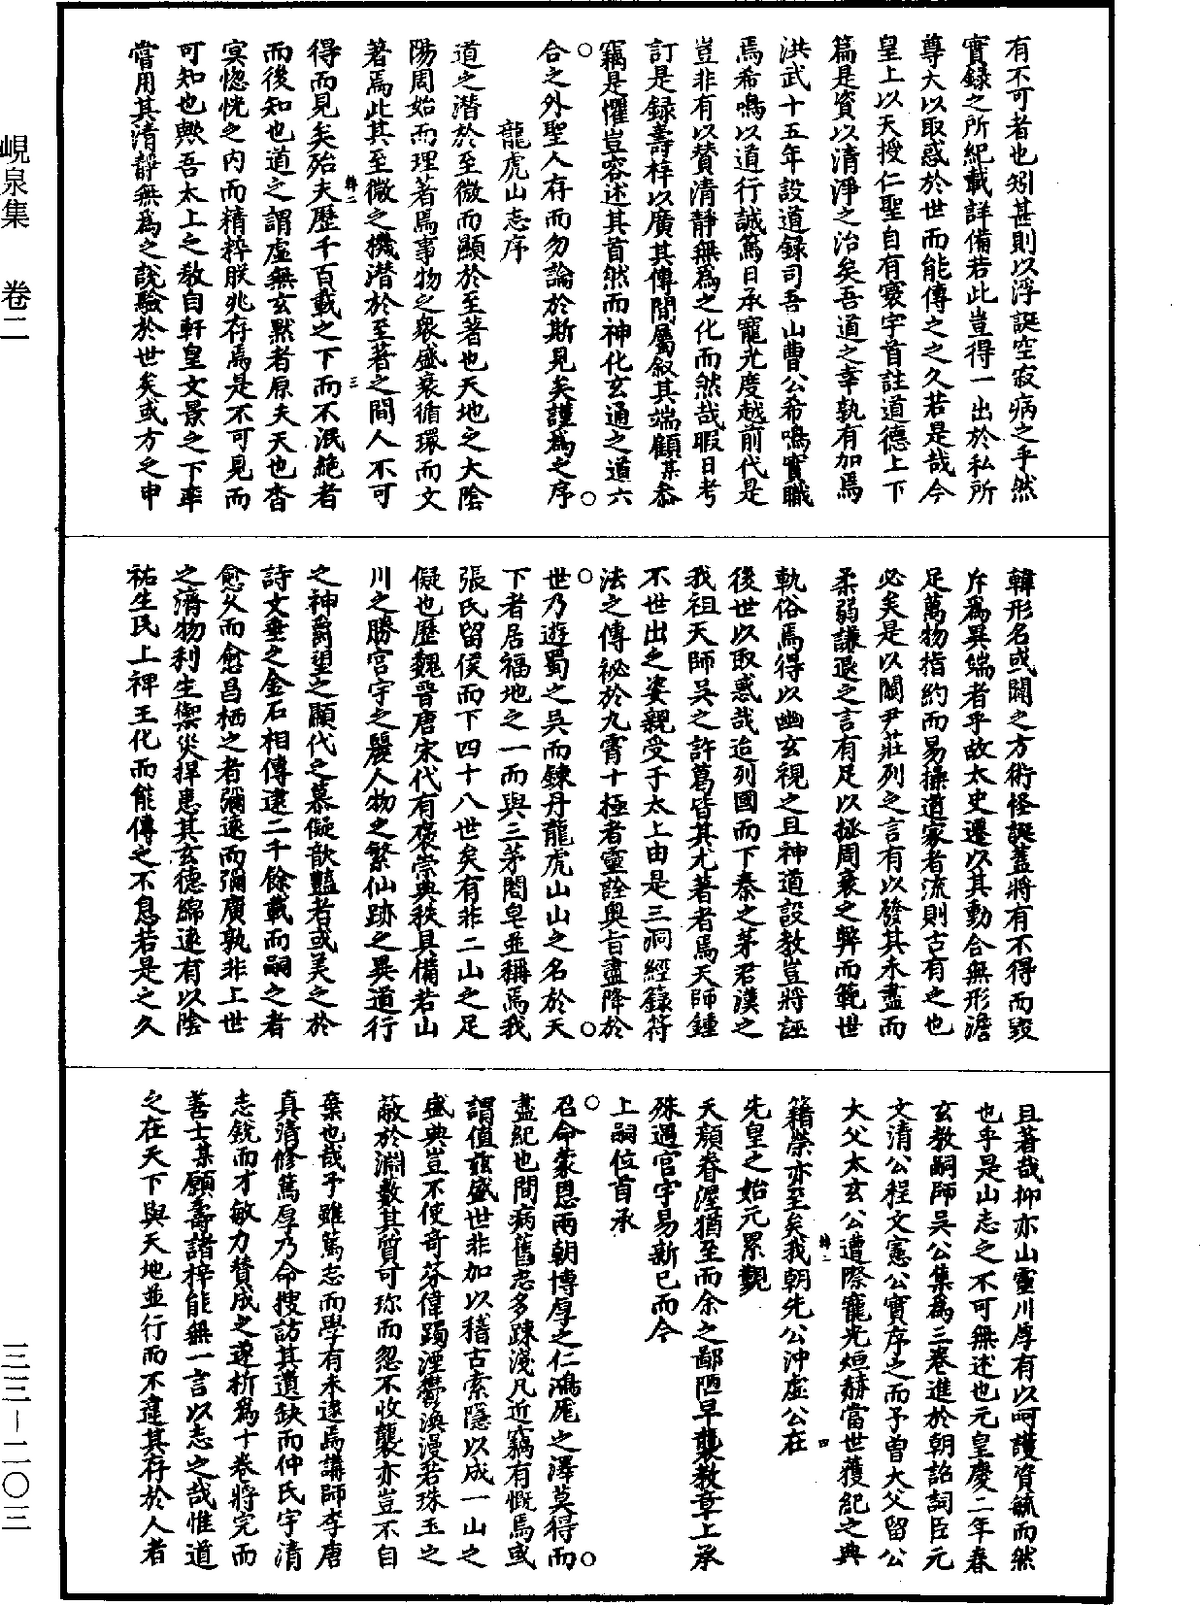 峴泉集　卷二
三三－二〇三
有不可者也矧甚則以浮誕空寂病之乎然
實録之所紀載詳備若此豈得一出於私所
尊大以取惑於世而能傳之之久若是哉今
皇上以天授仁聖自有寰宇首註道德上下
篇是資以清淨之治矣吾道之幸孰有加焉
洪武十五年設道録司吾山曹公希鳴實職
焉希鳴以道行誠篤日承寵光度越前代是
豈非有以賛清靜無為之化而然哉暇日考
訂是録壽梓以廣其傳間屬叙其端顧某忝
竊是懼豈容述其首然而神化玄通之道六
合之外聖人存而勿論於斯見矣謹為之序
龍虎山志序
道之潛於至微而顯於至著也天地之大陰
陽周始而理著焉事物之衆盛衰循環而文
著焉此其至微之機潛於至著之間人不可
得而見矣殆夫歷千百載之下而不泯絶者
而後知也道之謂虛無玄默者原夫天也杳
冥惚恍之内而精粹朕兆存焉是不可見而
可知也歟吾太上之教自軒皇文景之下率
嘗用其清靜無為之說驗於世矣或方之申
韓形名或闢之方術怪誕葢將有不得而毀
斥為異端者乎故太史遷以其動合無形澹
足萬物指約而易操道家者流則古有之也
必矣是以關尹莊列之言有以發其未盡而
柔弱謙退之言有足以拯周衰之弊而範世
軌俗焉得以幽玄視之且神道設教豈將誣
後世以取惑哉迨列國而下秦之茅君漢之
我祖天師吳之許葛皆其尤著者焉天師鍾
不世出之姿親受于太上由是三洞經籙符
法之傳祕於九霄十極者靈詮奥旨盡降於
世乃遊蜀之吳而錬丹龍虎山山之名於天
下者居福地之一而與三茅閤皂並稱焉我
張氏留侯而下四十八世矣有非二山之足
儗也歷魏晉唐宋代有褒崇典秩具備若山
川之勝宮宇之麗人物之繁仙跡之異道行
之神爵望之顯代之慕儗歆豔者或美之於
詩文垂之金石相傳逮二千餘載而嗣之者
愈久而愈昌栖之者彌遠而彌廣孰非上世
之濟物利生禦災捍患其玄德綿遠有以陰
祐生民上禆王化而能傳之不息若是之久
且著哉抑亦山靈川厚有以呵護資毓而然
也乎是山志之不可無述也元皇慶二年春
玄教嗣師吳公集為三卷進於朝詔詞臣元
文清公程文憲公實序之而予曽大父留公
大父太玄公遭際寵光烜赫當世獲紀之典
籍榮亦至矣我朝先公沖虛公在
先皇之始元累觀
天顏眷渥猶至而余之鄙陋早襲教章上承
殊遇宮宇易新已而今
上嗣位首承
召命蒙恩兩朝博厚之仁鴻厖之澤莫得而
盡紀也間病舊志多踈淺凡近竊有慨焉或
謂值兹盛世非加以稽古索隱以成一山之
盛典豈不使奇芬偉躅湮鬱渙漫若珠玉之
蔽於淵藪其質可珎而忽不收襲亦豈不自
棄也哉予雖篤志而學有未逮焉講師李唐
真清修篤厚乃命搜訪其遺缺而仲氏宇清
志銳而才敏力賛成之遂析為十卷將完而
善士某願壽諸梓能無一言以志之哉惟道
之在天下與天地並行而不違其存於人者